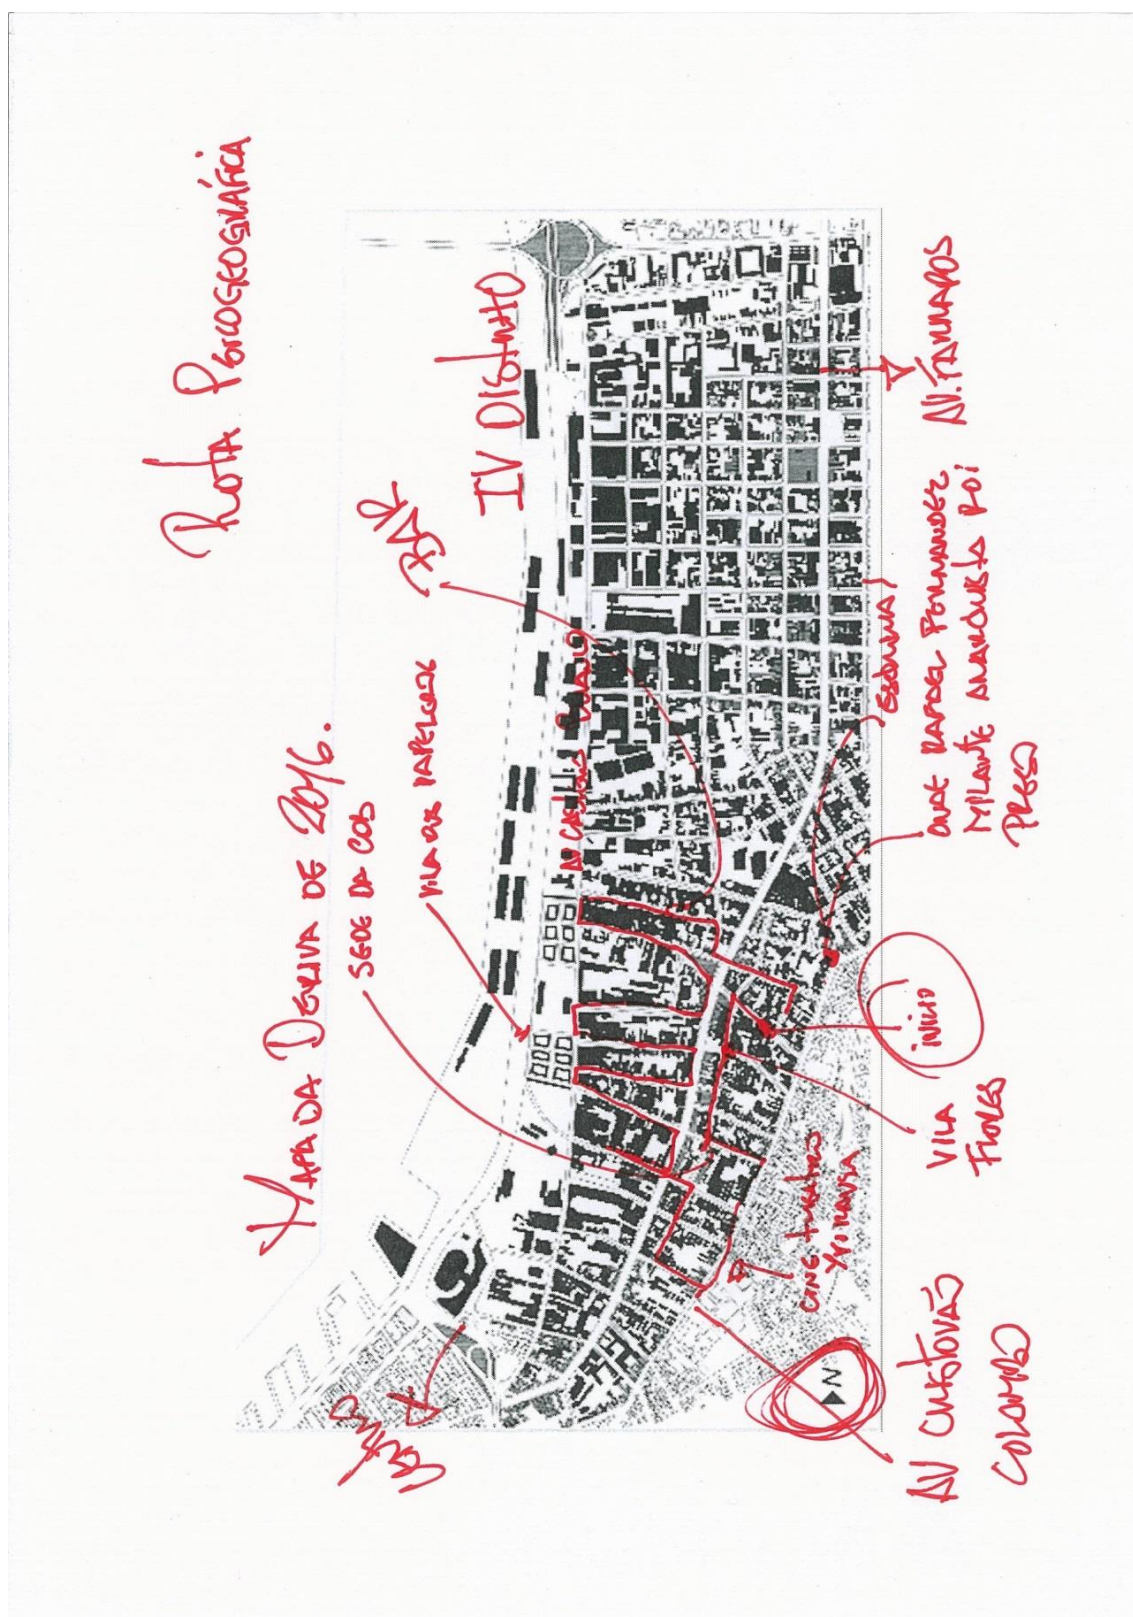 Rota Psicogeográfica
Mapa da Deriva de 2016.
SEDE DA COB
VILA DOS PAPELEIROS
BAR
IV DISTRITO
AV CASTELO BRANCO
CENTRO
AV. FARRAPOS
ESQUINA
ONDE RAFAEL FERNANDEZ
MILITANTE ANARQUISTA FOI
PRESO
INÍCIO
VILA
FLORES
CINE TEATRO
YPIRANGA
N
AV CRISTOVÃO
COLOMBO